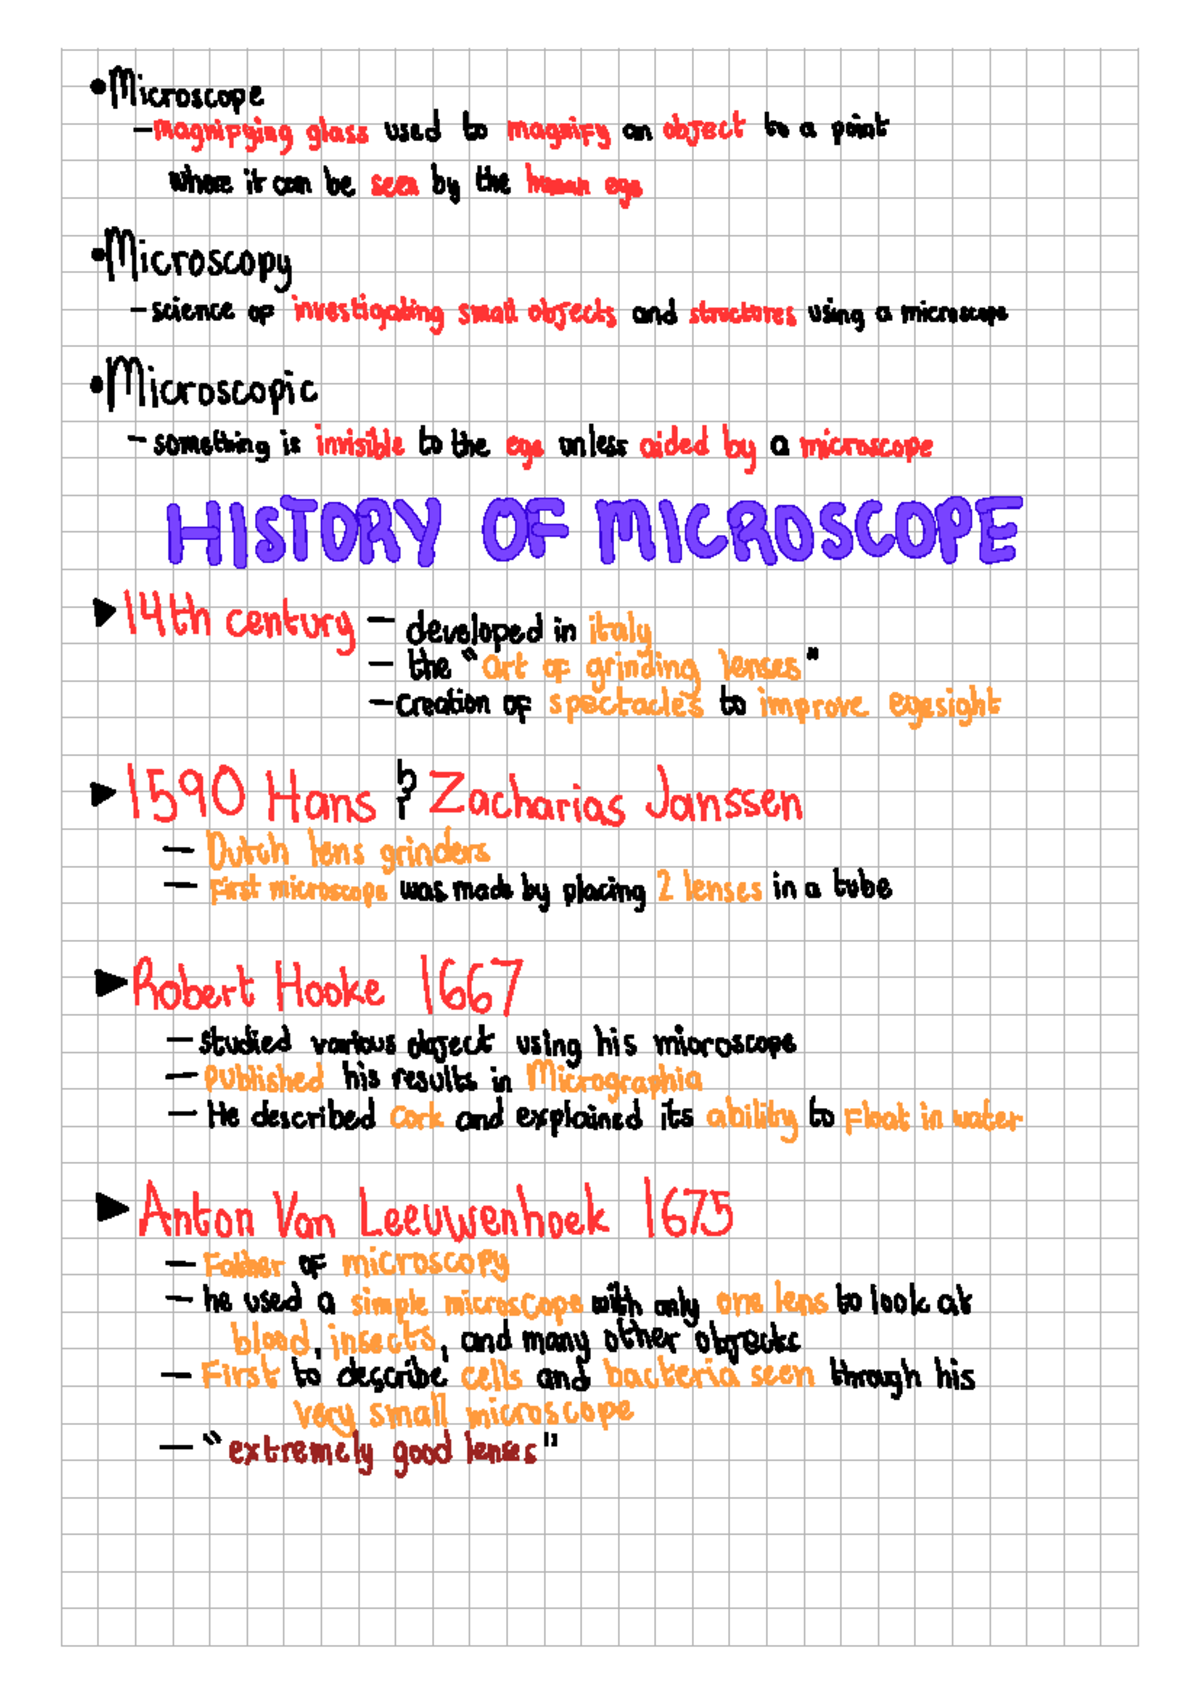 • Microscope
- magnifying glass used to magnify an object to a point
where it can be seen by the human eye
• Microscopy
- science of investigating small objects and structures using a microscope
• Microscopic
- something is invisible to the eye unless aided by a microscope
HISTORY OF MICROSCOPE
▶ 14th century - developed in italy
- the "art of grinding lenses"
- creation of spectacles to improve eyesight
▶ 1590 Hans & Zacharias Janssen
- Dutch lens grinders
- First microscope was made by placing 2 lenses in a tube
▶ Robert Hooke 1667
- studied various object using his microscope
- published his results in Micrographia
- He described cork and explained its ability to float in water
▶ Anton Van Leeuwenhoek 1675
- Father of microscopy
- he used a simple microscope with only one lens to look at
blood, insects, and many other objects
- First to describe cells and bacteria seen through his
very small microscope
- "extremely good lenses"